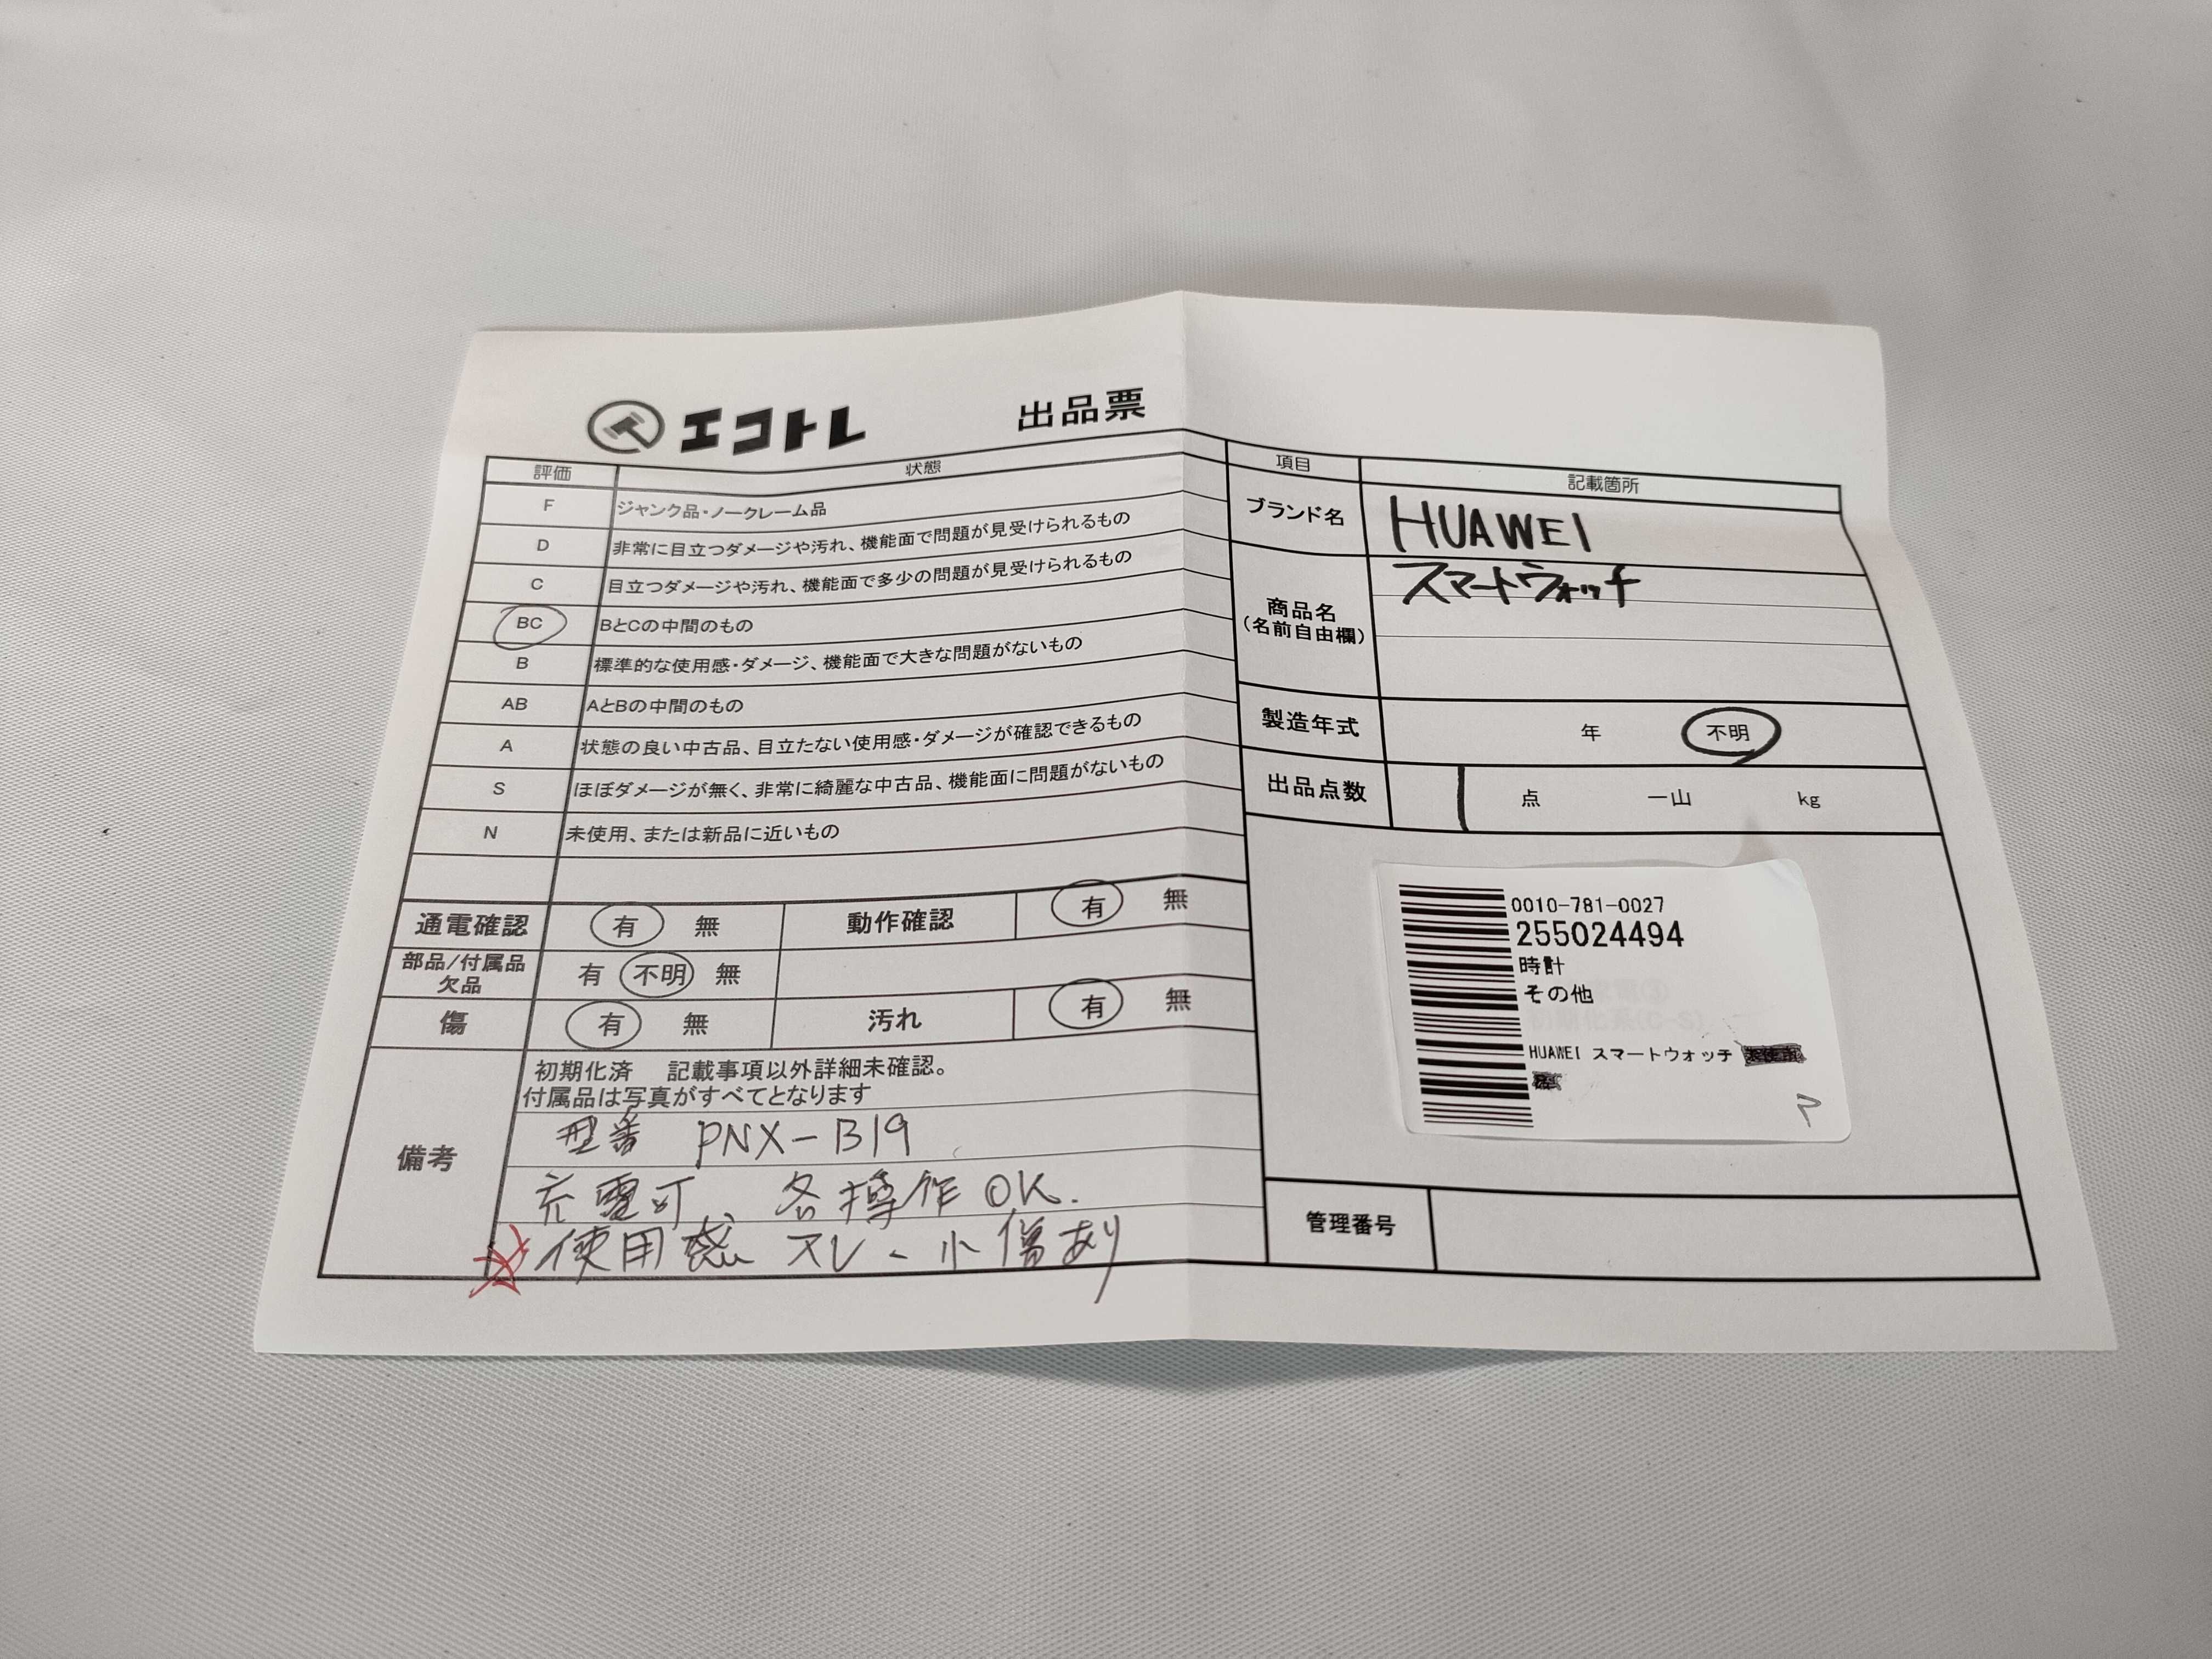 エコトレ 出品票
評価 状態
F ジャンク品・ノークレーム品
D 非常に目立つダメージや汚れ、機能面で問題が見受けられるもの
C 目立つダメージや汚れ、機能面で多少の問題が見受けられるもの
BC BとCの中間のもの
B 標準的な使用感・ダメージ、機能面で大きな問題がないもの
AB AとBの中間のもの
A 状態の良い中古品、目立たない使用感・ダメージが確認できるもの
S ほぼダメージが無く、非常に綺麗な中古品、機能面に問題がないもの
N 未使用、または新品に近いもの
通電確認 有 無 動作確認 有 無
部品/付属品
欠品
有 不明 無
傷 有 無 汚れ 有 無
備考
初期化済 記載事項以外詳細未確認。
付属品は写真がすべてとなります
型番 PNX-B19
充電可、各操作OK.
使用感 スレ、小傷あり
項目 記載箇所
ブランド名 HUAWEI
商品名
(名前自由欄)
スマートウォッチ
製造年式 年 不明
出品点数 1 点 一山 kg
0010-781-0027
255024494
時計
その他
HUAWEI スマートウォッチ
管理番号